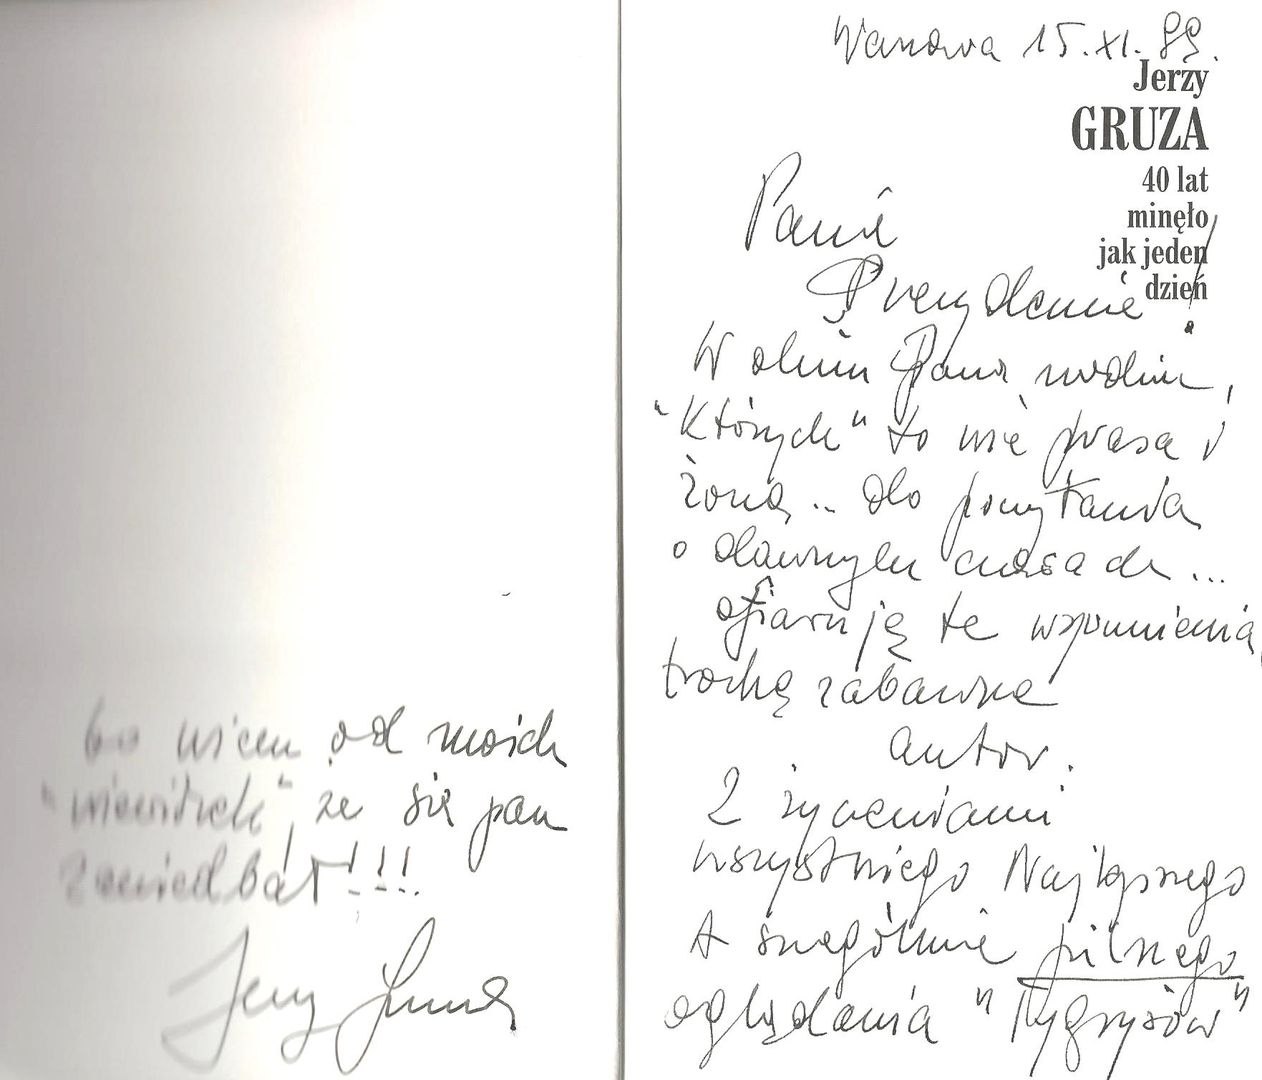 Warszawa 15.XI.99.
Jerzy
GRUZA
40 lat
minęło
jak jeden
dzień
Panie
Prezydencie!
W dniu Pana urodzin,
"których" to nie prasa i
żona.. do poczytania
o dawnych czasach...
ofiaruję te wspomnienia,
trochę zabawne
autor.
Z życzeniami
wszystkiego Najlepszego
A szczególnie pilnego
oglądania "Tygrysów"
bo wiem od moich
"wiewiórek", że się pan
zaniedbał!!!
Jerzy Gruza